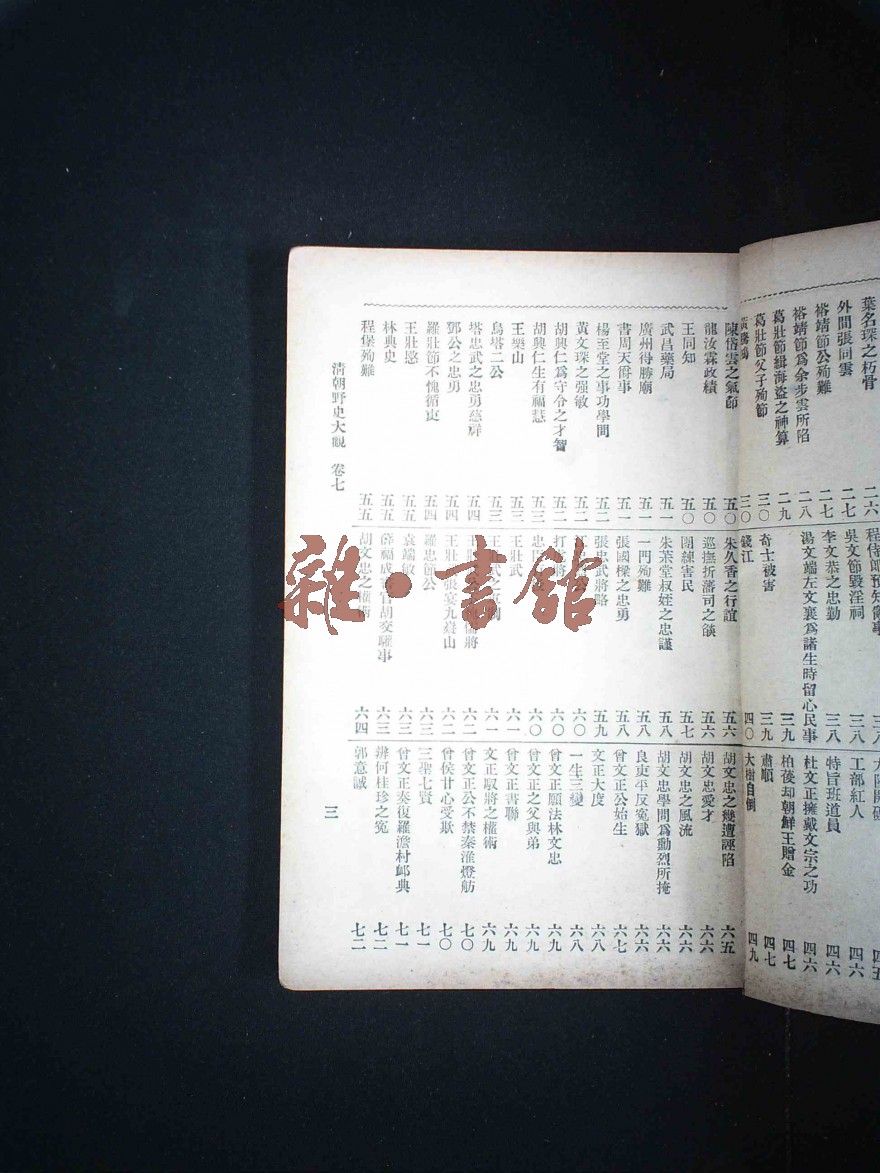 葉名琛之朽骨 二六
外間張同雲 二七
裕靖節公殉難 二七
裕靖節爲余步雲所陷 二八
葛壯節緝海盜之神算 二九
葛壯節父子殉節 三〇
三〇
吳文節毀淫祠 三八
李文恭之忠勤 三八
湯文端左文襄爲諸生時留心民事 三九
奇士被害 三九
錢江 四〇
工部紅人 四六
特旨班道員 四六
杜文正擁戴文宗之功 四六
柏葰却朝鮮王贈金 四七
肅順 四七
大樹自倒 四九
陳岱雲之氣節 五〇
龍汝霖政績 五〇
王同知 五〇
武昌藥局 五一
廣州得勝廟 五一
書周天爵事 五一
楊至堂之事功學問 五二
黃文琛之强敏 五二
胡興仁爲守令之才智 五二
胡興仁生有福慧 五三
王樂山 五三
烏塔二公 五三
塔忠武之忠勇慈祥 五四
鄧公之忠勇 五四
羅壯節不愧循吏 五四
王壯愍 五五
林典史 五五
程堡殉難 五五
朱久香之行誼 五六
巡撫折藩司之燄 五六
團練害民 五七
朱茮堂叔姪之忠謹 五八
一門殉難 五八
張國樑之忠勇 五八
張忠武將略 五九
六〇
六〇
六〇
王壯武 六一
六一
六二
王壯武宴九嶷山 六二
羅忠節公 六三
袁端敏 六三
六三
胡文忠之權術 六四
胡文忠之幾遭誣陷 六五
胡文忠愛才 六六
胡文忠之風流 六六
胡文忠學問爲勳烈所掩 六六
良吏平反寃獄 六六
曾文正公始生 六七
文正大度 六八
一生三變 六八
曾文正願法林文忠 六九
曾文正之父與弟 六九
曾文正書聯 六九
文正馭將之權術 六九
曾文正公不禁秦淮燈舫 七〇
曾侯甘心受欺 七〇
三聖七賢 七一
曾文正奏復羅澹村卹典 七一
辨何桂珍之寃 七二
郭意誠 七二
清朝野史大觀 卷七
三
雜·書館